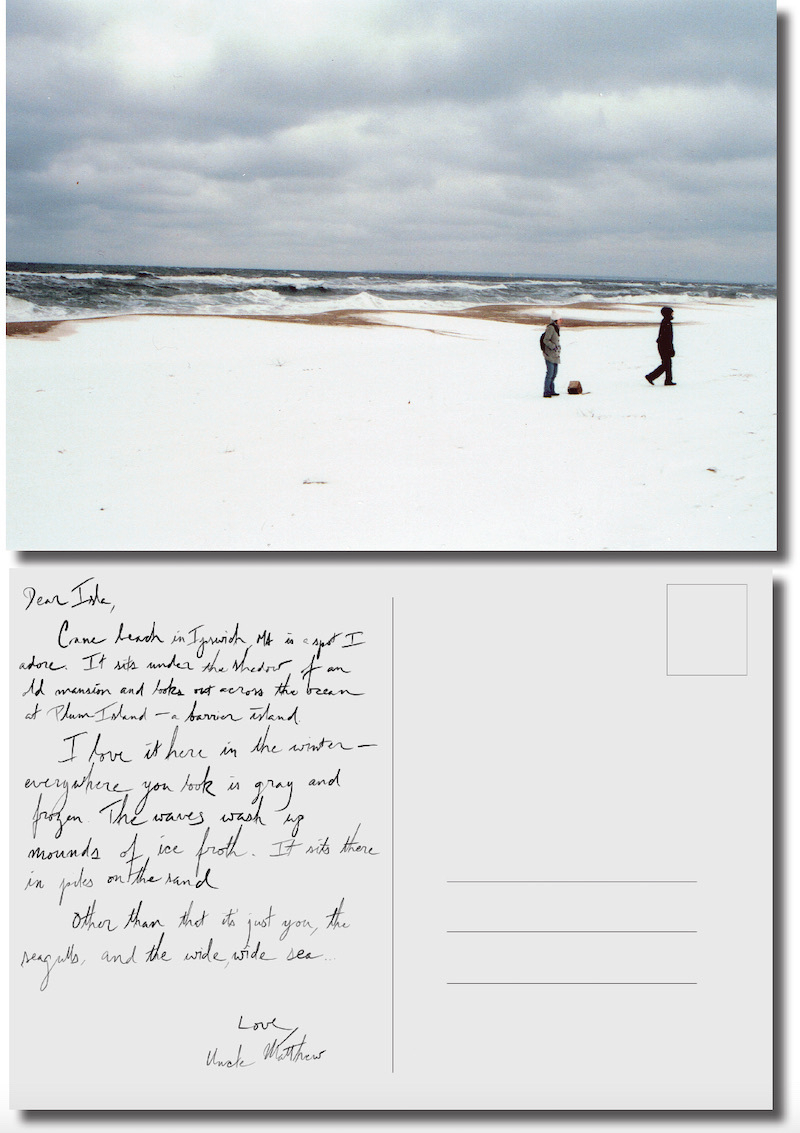 Dear Isla,
Crane beach in Ipswich, MA is a spot I
adore. It sits under the shadow of an
old mansion and looks out across the ocean
at Plum Island – a barrier island.
I love it here in the winter –
everywhere you look is gray and
frozen. The waves wash up
mounds of ice froth. It sits there
in piles on the sand
Other than that it's just you, the
seagulls, and the wide, wide sea...
Love,
Uncle Matthew